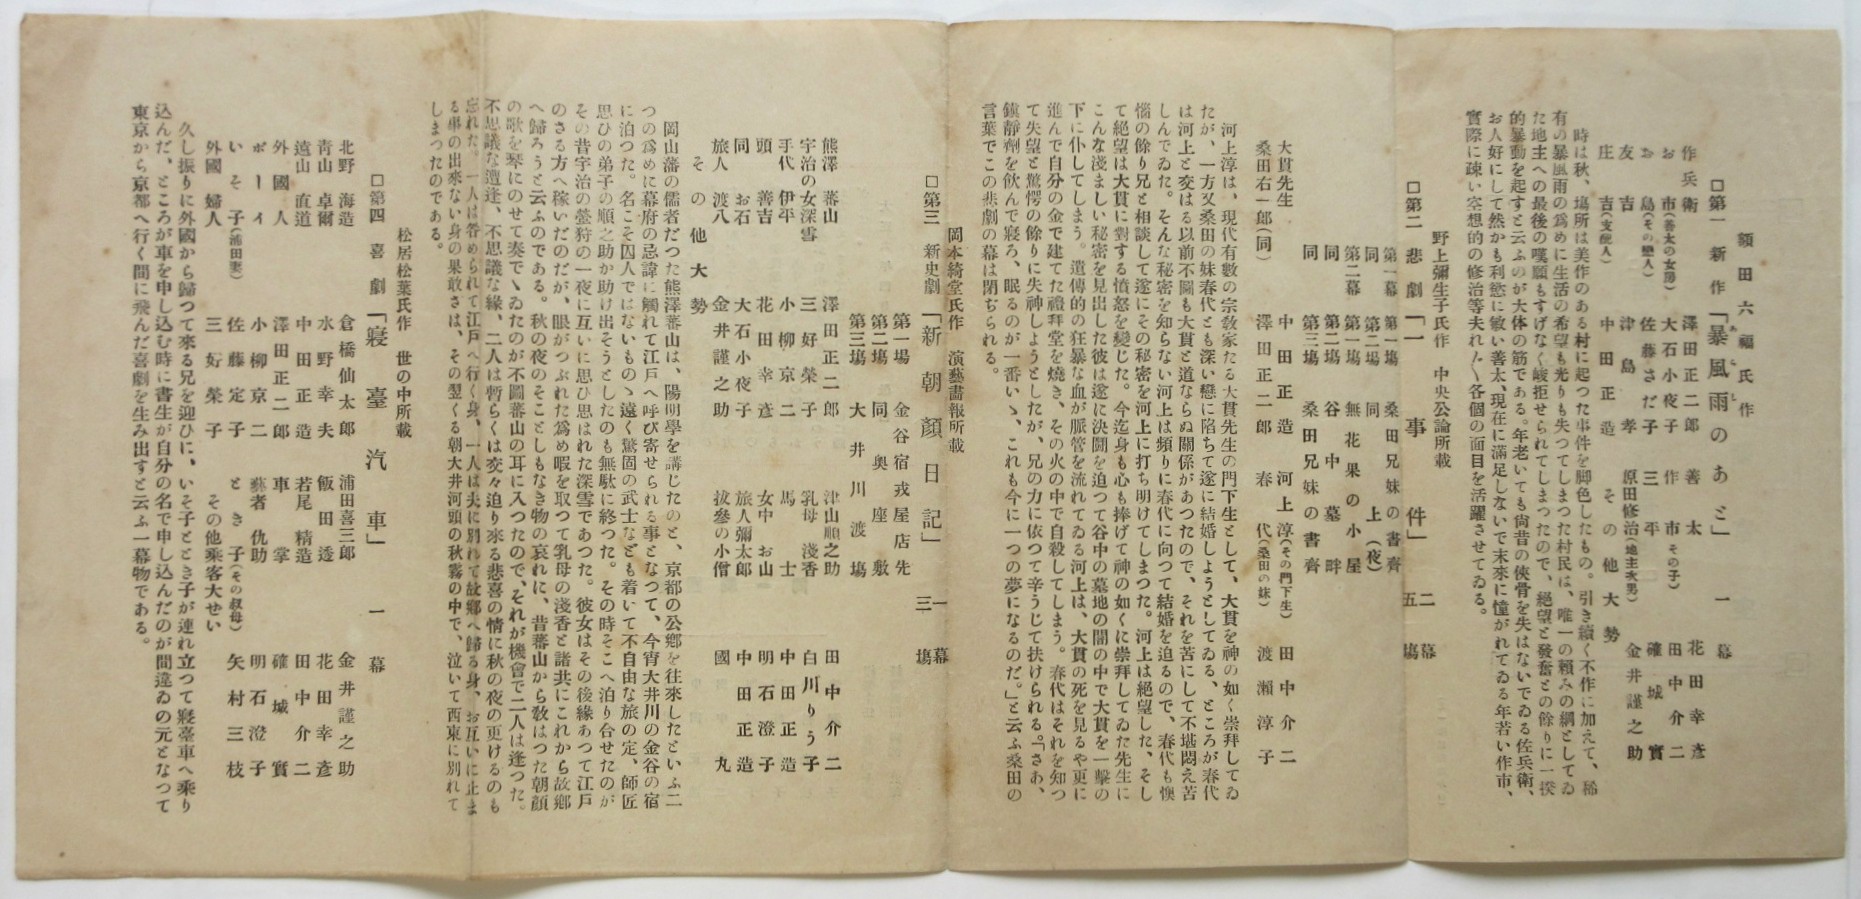 額田六福氏作
□第一 新作「暴風雨のあと」 一幕
作兵衛 澤田正二郎 善太 花田幸彦
お市(善太の女房) 大石小夜子 作市(その子) 田中介二
お島(その戀人) 佐藤さだ子 三平 確城實
友吉 津島孝 原田修治(地主次男) 金井謹之助
庄吉(支配人) 中田正造 その他大勢
時は秋、場所は美作のある村に起つた事件を脚色したもの。引き續く不作に加えて、稀
有の暴風雨の爲めに生活の希望も光りも失つてしまつた村民は、唯一の頼みの綱としてゐ
た地主への最後の嘆願もすげなく峻拒せられてしまつたので、絶望と發奮との餘りに一揆
的暴動を起すと云ふのが大体の筋である。年老いても尚昔の俠骨を失はないでゐる佐兵衛、
お人好にして然かも利慾に敏い善太、現在に滿足しないで末來に憧がれてゐる年若い作市、
實際に疎い空想的の修治等夫れ〱各個の面目を活躍させてゐる。
野上彌生子氏作 中央公論所載
□第二 悲劇「一事件」 二幕五場
第一幕 第一場 桑田兄妹の書齋
同 第二場 同 上(夜)
第二幕 第一場 無花果の小屋
同 第二場 谷中墓畔
同 第三場 桑田兄妹の書齋
大貫先生 中田正造 河上淳(その門下生) 田中介二
桑田右一郎(同) 澤田正二郎 春代(桑田の妹) 渡瀬淳子
河上淳は、現代有數の宗敎家たる大貫先生の門下生として、大貫を神の如く崇拜してゐ
たが、一方又桑田の妹春代とも深い戀に陷ちて遂に結婚しようとしてゐる、ところが春代
は河上と交はる以前不圖も大貫と道ならぬ關係があつたので、それを苦にして不堪悶え苦
しんでゐた。そんな秘密を知らない河上は頻りに春代に向つて結婚を迫るので、春代も懊
惱の餘り兄と相談して遂にその秘密を河上に打ち明けてしまつた。河上は絶望した、そし
て絶望は大貫に對する憤怒を變じた。今迄身も心も捧げて神の如くに崇拜してゐた先生に
こんな淺ましい秘密を見出した彼は遂に決鬪を迫つて谷中の墓地の闇の中で大貫を一撃の
下に仆してしまう。遺傳的の狂暴な血が脈管を流れてゐる河上は、大貫の死を見るや更に
進んで自分の金で建てた禮拜堂を燒き、その火の中で自殺してしまう。春代はそれを知つ
て失望と驚愕の餘りに失神しようとしたが、兄の力に依つて辛うじて扶けられる。「さあ、
鎭靜劑を飲んで寢ろ、眠るのが一番いゝ、これも今に一つの夢になるのだ。」と云ふ桑田の
言葉でこの悲劇の幕は閉ぢられる。
岡本綺堂氏作 演藝畫報所載
□第三 新史劇「新朝顔日記」 一幕三場
第一場 金谷宿戎屋店先
第二場 同 奥座敷
第三場 大井川渡場
熊澤蕃山 澤田正二郎 津山順之助 田中介二
宇治の女深雪 三好榮子 乳母淺香 白川りう子
手代伊平 小柳京二 馬士 中田正造
頭善吉 花田幸彦 女中お山 明石澄子
同お石 大石小夜子 旅人彌太郎 中田正造
旅人渡八 金井謹之助 拔參の小僧 國丸
その他大勢
岡山藩の儒者だつた熊澤蕃山は、陽明學を講じたのと、京都の公鄕を往來したといふ二
つの爲めに幕府の忌諱に觸れて江戸へ呼び寄せられる事となつて、今宵大井川の金谷の宿
に泊つた。名こそ囚人ではないものゝ遠く驚固の武士なども着いて不自由な旅の定、師匠
思ひの弟子の順之助か助け出そうとしたのも無駄に終つた。その時そこへ泊り合せたのが
その昔宇治の螢狩の一夜に互いに思ひ思はれた深雪であつた。彼女はその後緣あつて江戸
のさる方へ稼いだのだが、眼がつぶれた爲め暇を取つて乳母の淺香と諸共にこれから故鄕
へ歸ろうと云ふのである。秋の夜のそことしもなき物の哀れに、昔蕃山から敎はつた朝顔
の歌を琴にのせて奏でゝゐたのが不圖蕃山の耳に入つたので、それが機會で二人は逢つた。
不思議な遭逢、不思議な緣、二人は暫らくは交々迫り來る悲喜の情に秋の夜の更けるのも
忘れた。一人は咎められて江戸へ行く身、一人は夫に別れて故鄕へ歸る身、お互いに止ま
る事の出來ない身の果敢さは、その翌くる朝大井河頭の秋霧の中で、泣いて西東に別れて
しまつたのである。
松居松葉氏作 世の中所載
□第四 喜劇「寢臺汽車」 一幕
北野海造 倉橋仙太郎 浦田喜三郎 金井謹之助
青山卓爾 水野幸夫 飯田透 花田幸彦
遠山直道 中田正造 若尾精造 田中介二
外國人 澤田正二郎 車掌 確城實
ボーイ 小柳京二 藝者仇助 明石澄子
いそ子(浦田妻) 佐藤定子 とき子(その叔母) 矢村三枝
外國婦人 三好榮子 その他乘客大せい
久し振りに外國から歸つて來る兄を迎ひに、いそ子ととき子が連れ立つて寢臺車へ乘り
込んだ、ところが車を申し込む時に書生が自分の名で申し込んだのが間違ゐの元となつて
東京から京都へ行く間に飛んだ喜劇を生み出すと云ふ一幕物である。